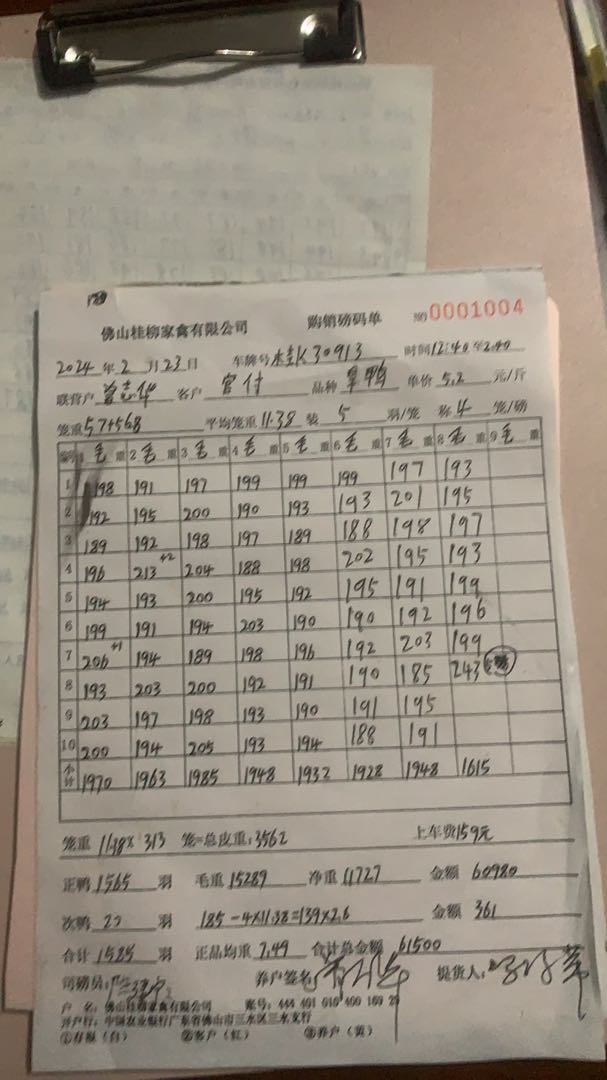 佛山桂柳家禽有限公司 购销磅码单 №0001004
2024年2月23日 车牌号 K30913 时间12:40至2:40
联营户 曾志华 客户 官付 品种 旱鸭 单价5.2元/斤
笼重57+568 平均笼重11.38 装5羽/笼 称4笼/磅
编号 1毛重 2毛重 3毛重 4毛重 5毛重 6毛重 7毛重 8毛重 9毛重
1 198 191 197 199 199 199 197 193
2 192 195 200 190 193 193 201 195
3 189 192 198 197 189 188 198 197
4 196 213+2 204 188 198 202 195 193
5 194 193 200 195 192 195 191 199
6 199 191 194 203 190 190 192 196
7 206+1 194 189 198 196 192 203 199
8 193 203 200 192 191 190 185 243
9 203 197 198 193 190 191 195
10 200 194 205 193 194 188 191
小计 1970 1963 1985 1948 1932 1928 1948 1615
笼重 11.38× 313 笼=总皮重:3562 上车费159元
正鸭1565羽 毛重15289 净重11727 金额60980
次鸭 羽 185-4×11.38=139×2.6 金额361
合计1585羽 正品均重7.49 合计总金额61500
司磅员: 养户签名 提货人:
户 名:佛山桂柳家禽有限公司 账号:444 401 010 400 169 29
开户行:中国农业银行广东省佛山市三水区三水支行
①存根(白) ②客户(红) ③养户(黄)